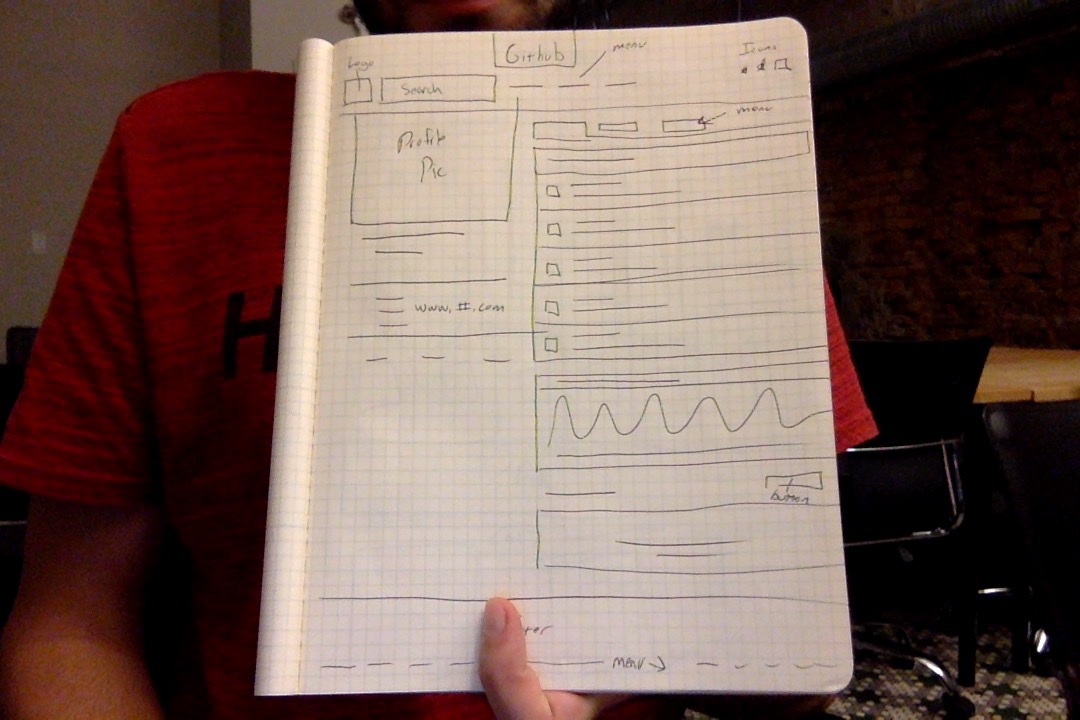 Github
menu
Icons
Logo
Search
menu
Profile
Pic
www.#.com
button
menu
H